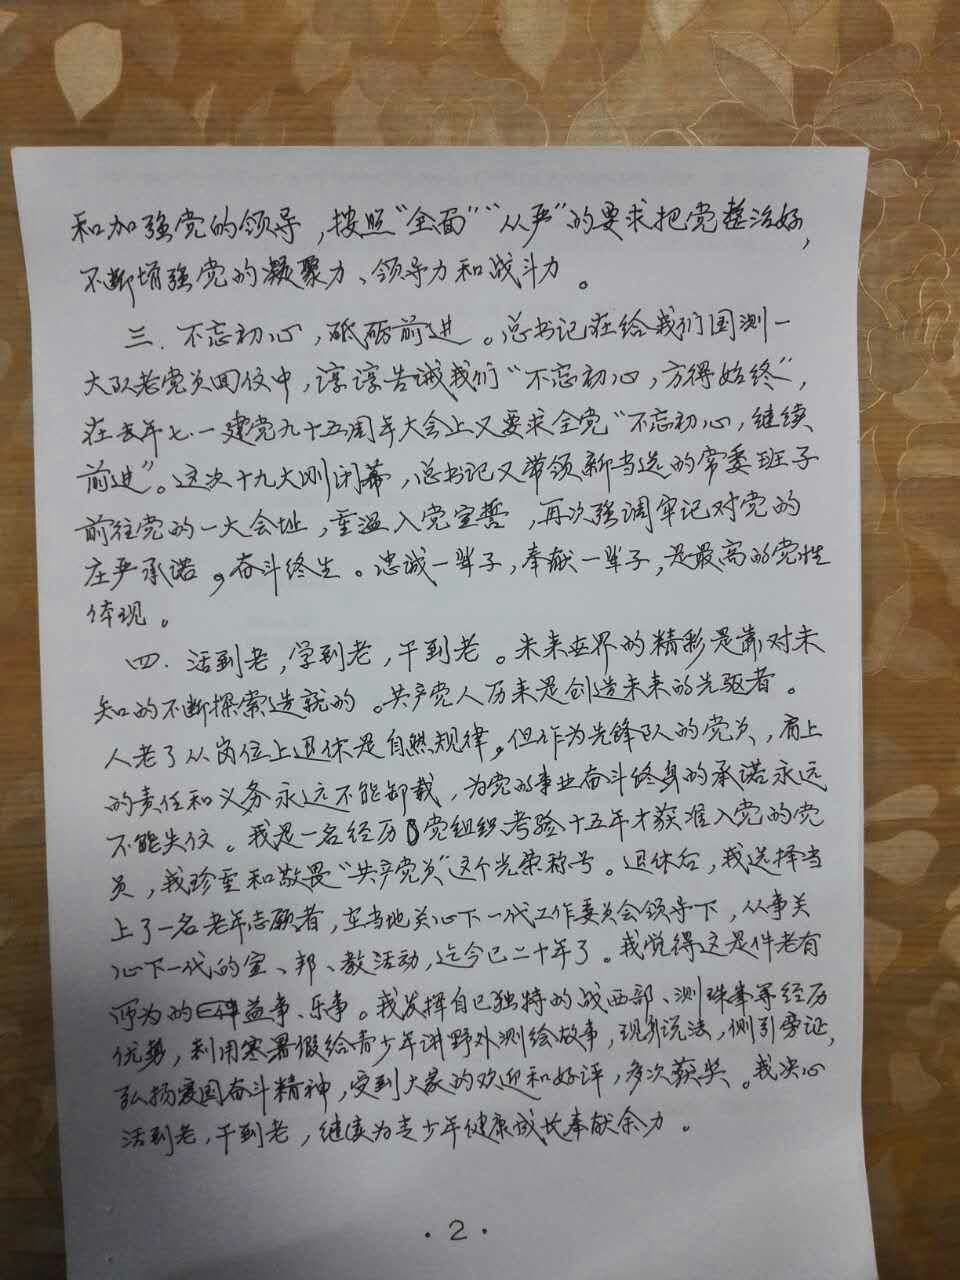 和加强党的领导，按照“全面”“从严”的要求把党整治好，
不断增强党的凝聚力、领导力和战斗力。
三．不忘初心，砥砺前进。总书记在给我们国测一
大队老党员回信中，谆谆告诫我们“不忘初心，方得始终”，
在去年七·一建党九十五周年大会上又要求全党“不忘初心，继续
前进”。这次十九大刚闭幕，总书记又带领新当选的常委班子
前往党的一大会址，重温入党宣誓，再次强调牢记对党的
庄严承诺，奋斗终生。忠诚一辈子，奉献一辈子，是最高的党性
体现。
四．活到老，学到老，干到老。未来世界的精彩是靠对未
知的不断探索造就的。共产党人历来是创造未来的先驱者。
人老了从岗位上退休是自然规律，但作为先锋队的党员，肩上
的责任和义务永远不能卸载，为党的事业奋斗终身的承诺永远
不能失信。我是一名经历党组织考验十五年才获准入党的党
员，我珍重和敬畏“共产党员”这个光荣称号。退休后，我选择当
上了一名老年志愿者，在当地关心下一代工作委员会领导下，从事关
心下一代的宣、帮、教活动，迄今已二十年了。我觉得这是件老有
所为的益事、乐事。我发挥自己独特的战西部、测珠峰等经历
优势，利用寒暑假给青少年讲野外测绘故事，现身说法，侧引旁证，
弘扬爱国奋斗精神，受到大家的欢迎和好评，多次获奖。我决心
活到老，干到老，继续为青少年健康成长奉献余力。
·2·